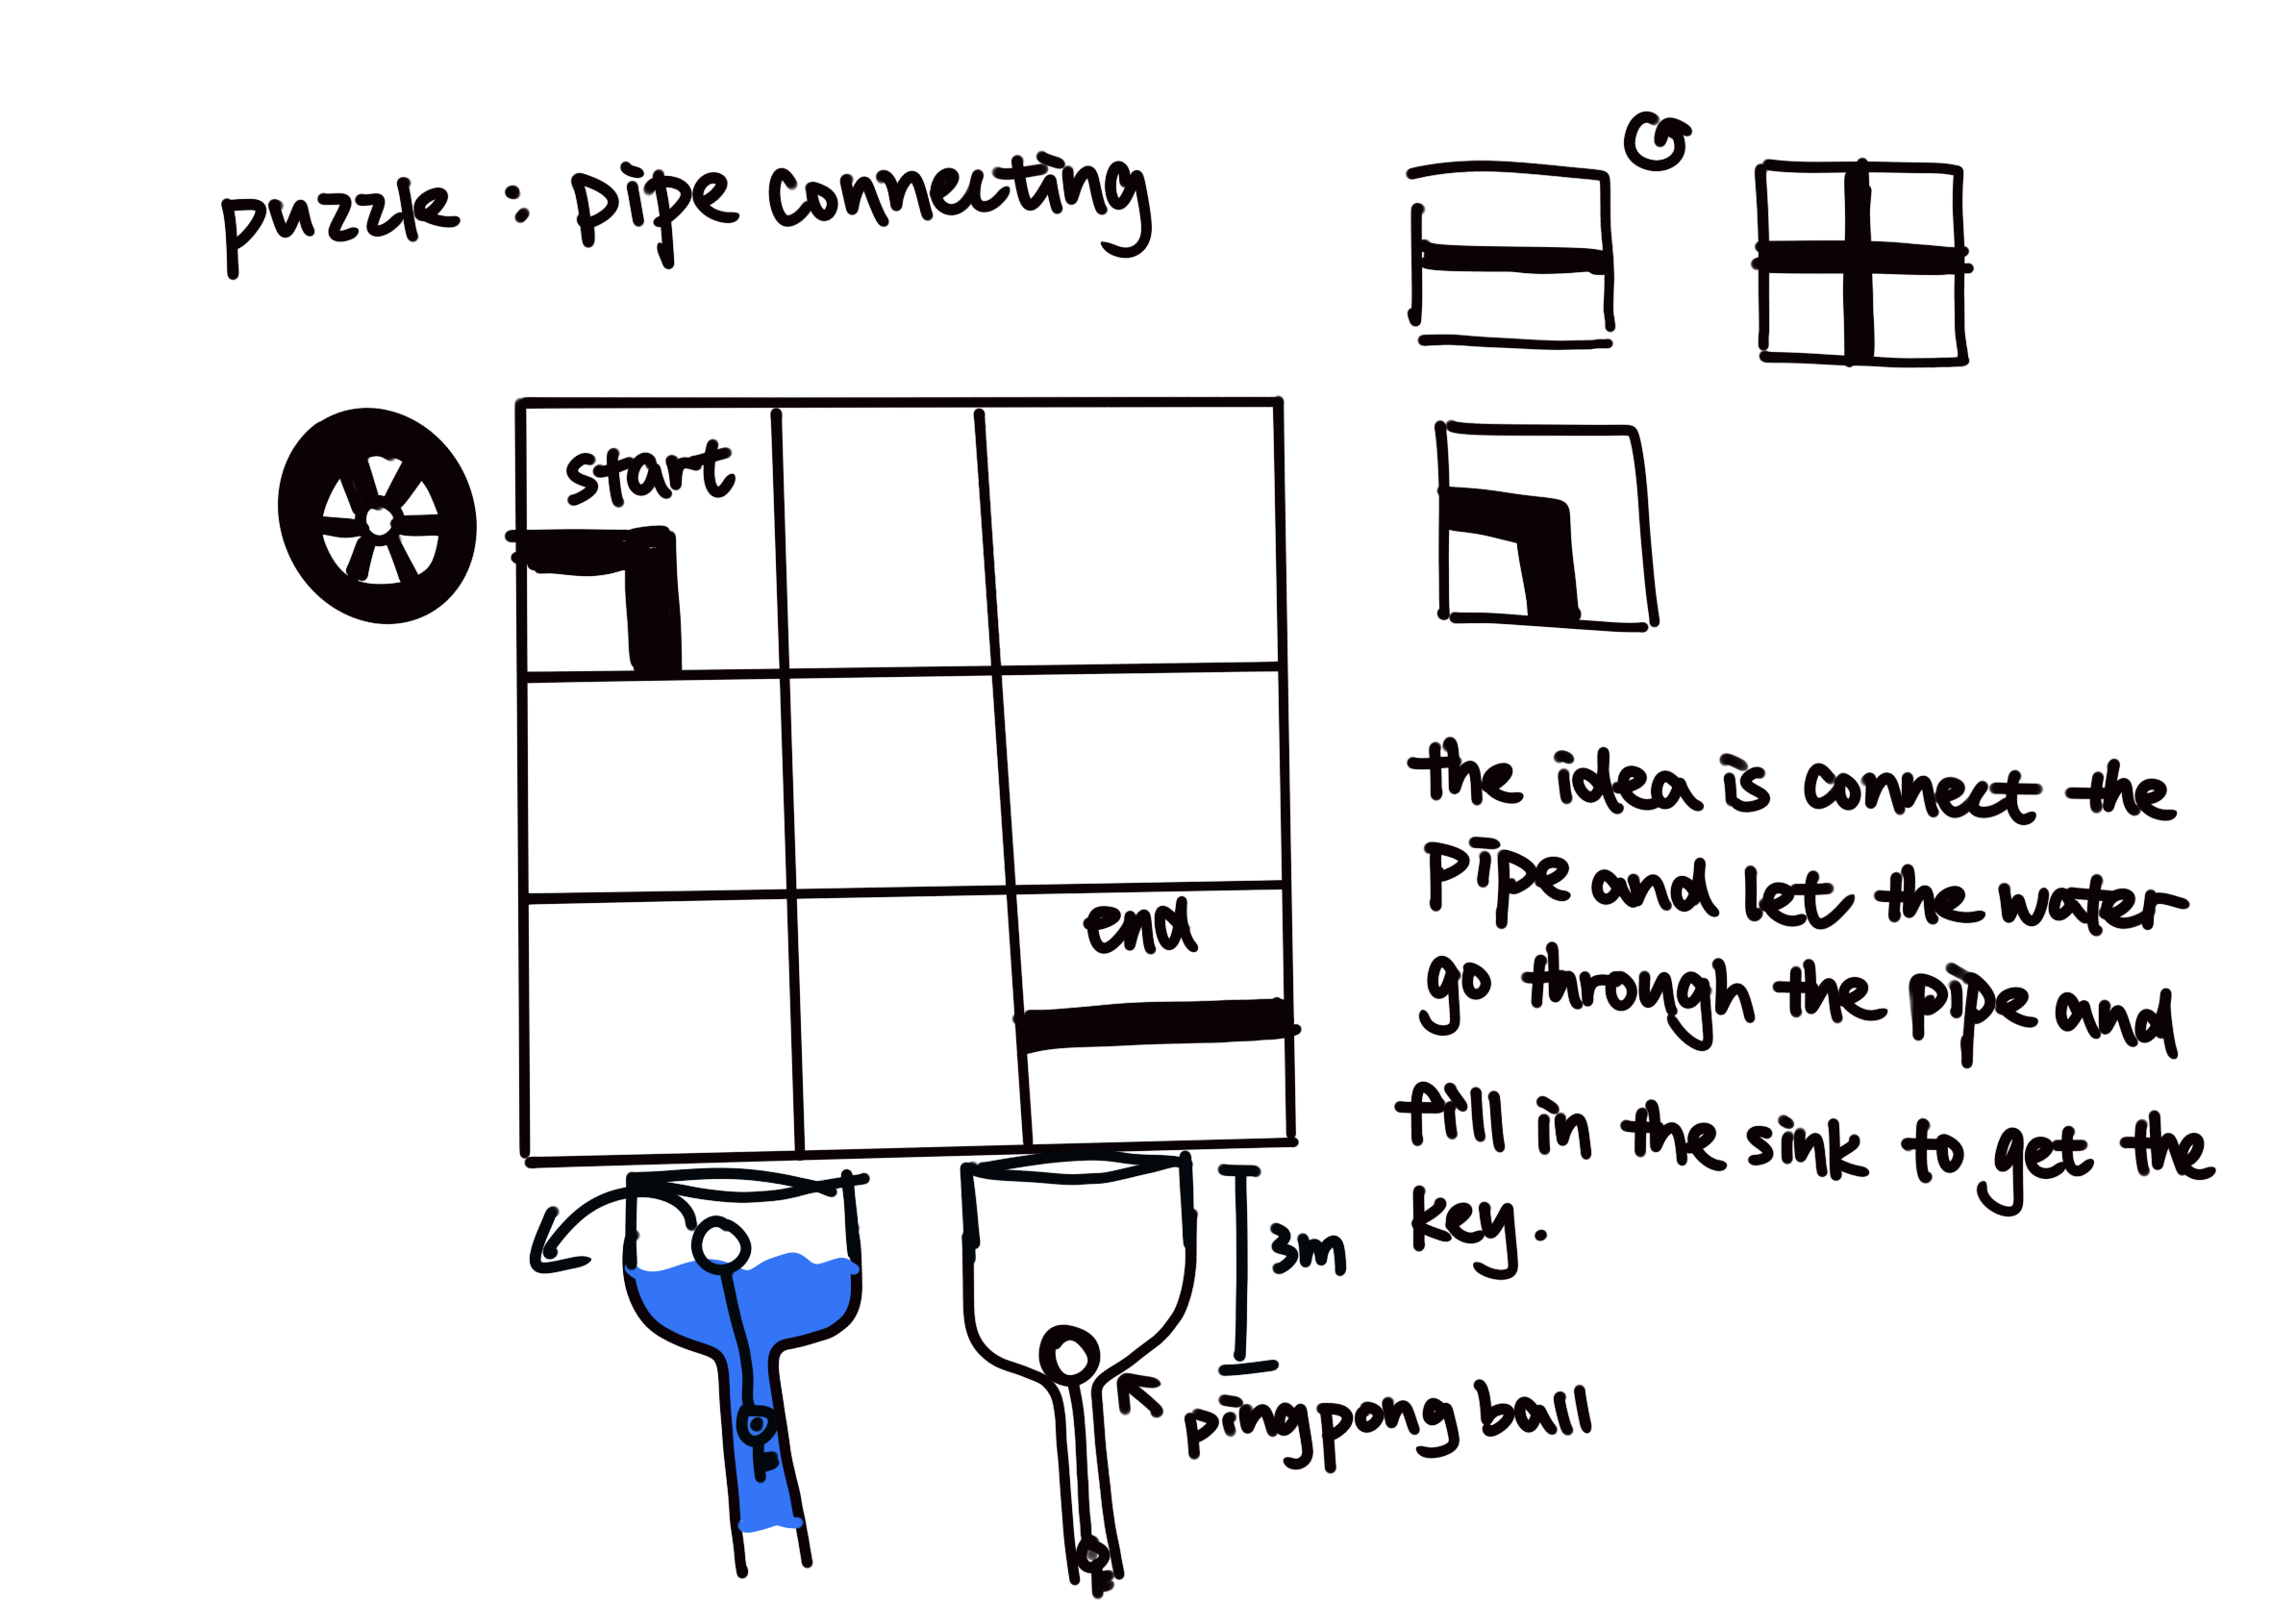 puzzle : pipe connecting
start
end
the idea is connect the
pipe and let the water
go through the pipe and
fill in the sink to get the
key.
3m
pingpong ball